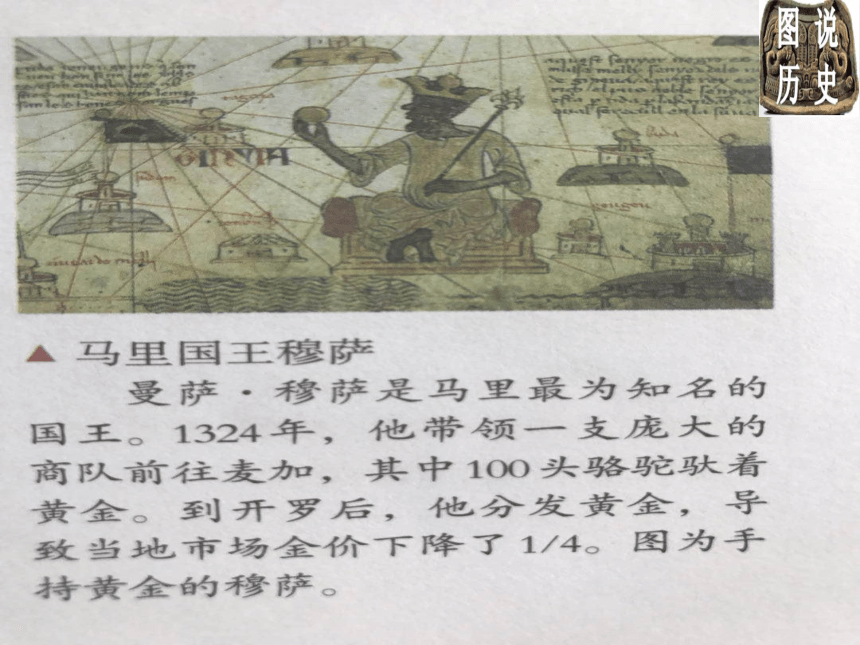 图说
历史
▲ 马里国王穆萨
曼萨·穆萨是马里最为知名的
国王。1324年，他带领一支庞大的
商队前往麦加，其中100头骆驼驮着
黄金。到开罗后，他分发黄金，导
致当地市场金价下降了1/4。图为手
持黄金的穆萨。